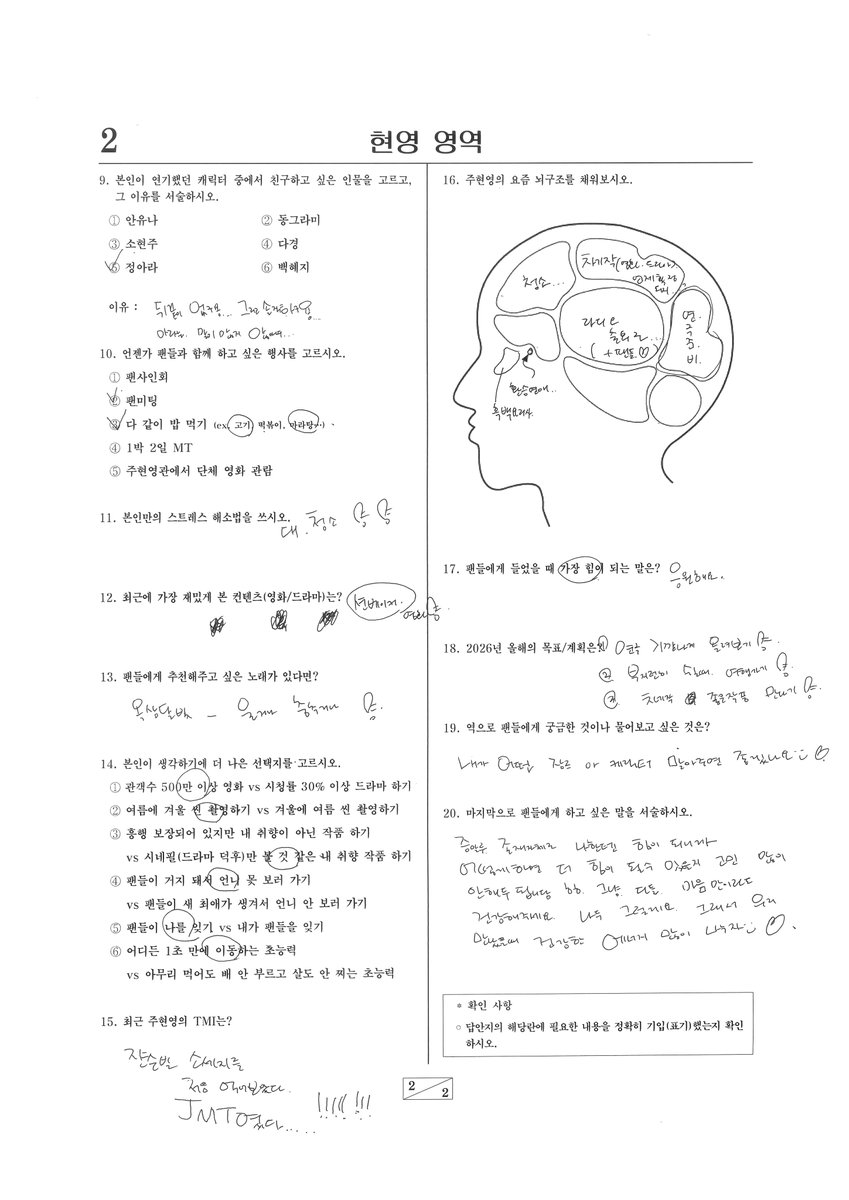 2
현영 영역
9. 본인이 연기했던 캐릭터 중에서 친구하고 싶은 인물을 고르고,
그 이유를 서술하시오.
① 안유나 ② 동그라미
③ 소현주 ④ 다경
⑤ 정아라 ⑥ 백혜지
이유 : 뒤끝이 없구용...
10. 언젠가 팬들과 함께 하고 싶은 행사를 고르시오.
① 팬사인회
② 팬미팅
③ 다 같이 밥 먹기 (ex. 고기, 떡볶이, 마라탕...)
④ 1박 2일 MT
⑤ 주현영관에서 단체 영화 관람
11. 본인만의 스트레스 해소법을 쓰시오.
대.청소
12. 최근에 가장 재밌게 본 컨텐츠(영화/드라마)는?
13. 팬들에게 추천해주고 싶은 노래가 있다면?
옥상달빛 –
14. 본인이 생각하기에 더 나은 선택지를 고르시오.
① 관객수 500만 이상 영화 vs 시청률 30% 이상 드라마 하기
② 여름에 겨울 씬 촬영하기 vs 겨울에 여름 씬 촬영하기
③ 흥행 보장되어 있지만 내 취향이 아닌 작품 하기
vs 시네필(드라마 덕후)만 볼 것 같은 내 취향 작품 하기
④ 팬들이 거지 돼서 언니 못 보러 가기
vs 팬들이 새 최애가 생겨서 언니 안 보러 가기
⑤ 팬들이 나를 잊기 vs 내가 팬들을 잊기
⑥ 어디든 1초 만에 이동하는 초능력
vs 아무리 먹어도 배 안 부르고 살도 안 찌는 초능력
15. 최근 주현영의 TMI는?
쟌슨빌 소세지를
처음 먹어보았다.
JMT였다..... !!!!! !!!
16. 주현영의 요즘 뇌구조를 채워보시오.
청소...
차기작(영화, 드라마)
언제 확정
되지..
라디오
출외근...
(+팬등♡)
연
극
준
비.
환승연애..
흑백요리사.
17. 팬들에게 들었을 때 가장 힘이 되는 말은? 응원해요.
18. 2026년 올해의 목표/계획은?
② 여행가기
③ 차기작 좋은작품 만나기
19. 역으로 팬들에게 궁금한 것이나 물어보고 싶은 것은?
내가 어떤 장르 or 캐릭터 맡아주면 좋겠나요 ♡
20. 마지막으로 팬들에게 하고 싶은 말을 서술하시오.
존재자체로 나한텐 힘이 되니까
어떻게하면 더 힘이 될수 있을지 고민 많이
안해두 됩니당 ㅎㅎ. 그냥. 다들. 마음만이라도
건강해주세요. 나두 그럴게요. 그래서 우리
만났을때 건강한 에너지 많이 나누자 ♡.
* 확인 사항
○ 답안지의 해당란에 필요한 내용을 정확히 기입(표기)했는지 확인
하시오.
2
2